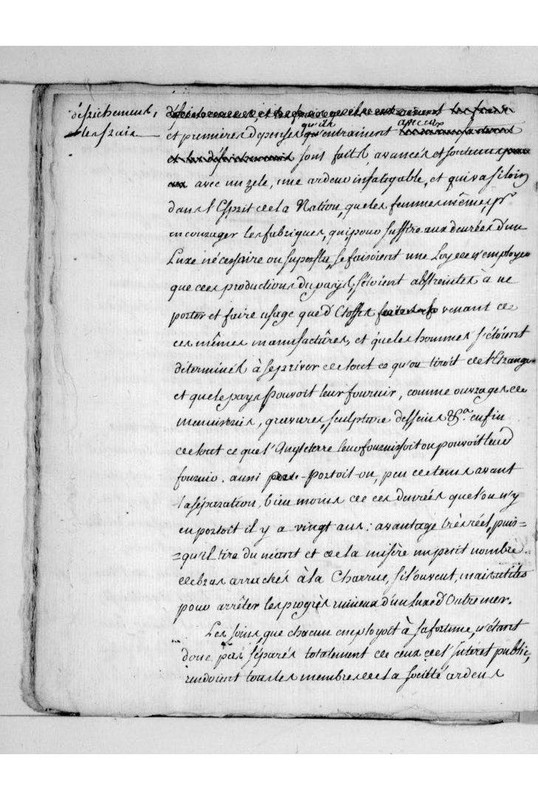 défrichement,
et premieres depenses qu'ils entrainent
sont faits, avancés et soutenus
avec un zele, une ardeur infatigable, et qui va si loin
dans l'Esprit de la Nation, que les femmes mêmes, pr
encourager les fabriques, qui pour suffire aux deurées d'un
Luxe nécessaire ou superflu, se faisoient une Loy de n'employer
que des productions du pays, s'étoient abstreintes à ne
porter et faire usage que d'Etoffes venant de
ces mêmes manufactures, et que les hommes s'étoient
déterminés à se priver de tout ce qu'on tiroit de l'Etranger
et que le pays pouvoit leur fournir, comme ouvrages de
menuiserie, gravures, sculpture desseins &a. enfin
de tout ce que l'Angleterre leur fournissoit ou pouvoit leur
fournir. aussi portoit-on, peu de tems avant
la séparation, bien moins de ces denrées que l'on n'y
en portoit il y a vingt ans: avantage très réel, puis=
=qu'il tire du néant et de la misère un petit nombre
de bras arrachés à la Charrue, si souvent, mais utiles
pour arrêter les progrès ruineux d'un luxe d'Outremer.
Les soins que chacun employoit à sa fortune, n'étant
donc pas séparés totalement de ceux de l'interet public,
rendoient tous les membres de la société ardens